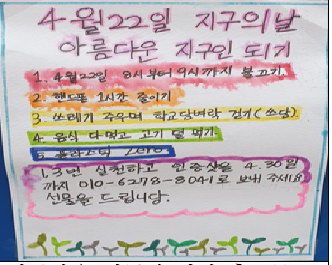 4월22일 지구의날
아름다운 지구인 되기
1. 4월22일 8시부터 9시까지 불끄기.
2. 핸드폰 1시간 줄이기
3. 쓰레기 주우며 학교담벼락 걷기(쓰담)
4. 음식 다먹고 고기 덜 먹기.
5. 플라스틱 Zero.
1,3번 실천하고 인증샷을 4.30일
까지 010-6278-8041로 보내 주세요
선물을 드립니다.